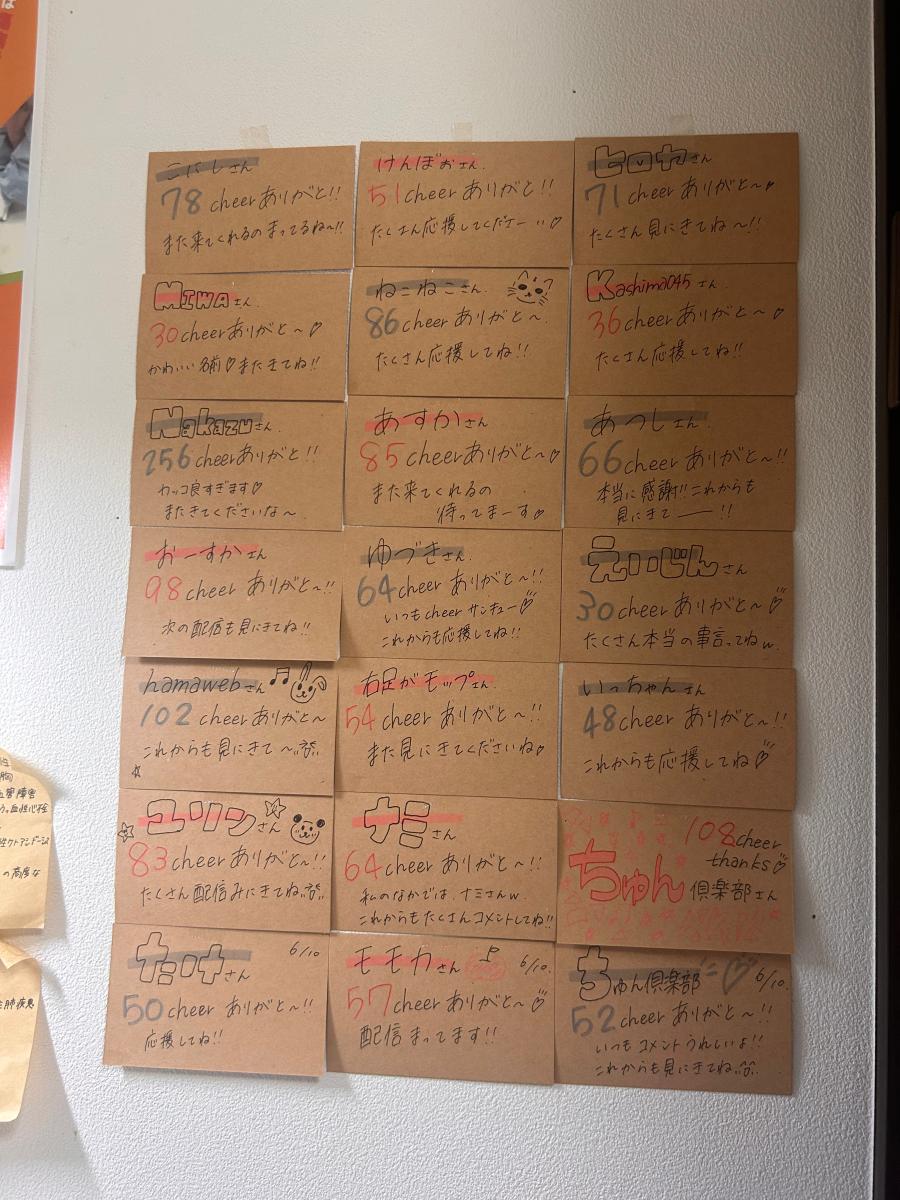 こにしさん
78 cheerありがと!!
また来てくれるのまってるね〜!!
けんぼぉさん
51cheerありがと!!
たくさん応援してくださーい♡
ヒロヤさん
71cheerありがと〜♡
たくさん見にきてね〜!!
MIWAさん.
30cheerありがと〜♡
かわいい名前♡またきてね!!
ねこねこさん.
86cheerありがと〜
たくさん応援してね!!
Kashima045さん.
36cheerありがと〜♡
たくさん応援してね!!
Nakazuさん.
256cheerありがと!!
カッコ良すぎます♡
またきてくださいな〜
あすかさん
85cheerありがと〜♡
また来てくれるの
待ってまーす♡
あつしさん.
66cheerありがと〜!!
本当に感謝!!これからも
見にきてー!!
おーすかさん
98cheerありがと〜!!
次の配信も見にきてね!!
ゆづきさん.
64cheerありがと〜!!
いつもcheerサンキュー♡
これからも応援してね!!
えいじんさん
30cheerありがと〜♡
たくさん本当の事言ってねw
hamawebさん♫
102 cheerありがと〜
これからも見にきて〜
右足がモップさん.
54cheerありがと〜!!
また見にきてくださいね♡
いっちゃんさん
48cheerありがと〜!!
これからも応援してね♡
ユリンさん
83cheerありがと〜!!
たくさん配信みにきてね
ナミさん
64cheerありがと〜!!
私のなかでは、ナミさんw
これからもたくさんコメントしてね!!
108cheer
thanks♡
ちゅん倶楽部さん
さん 6/10
50cheerありがと〜!!
応援してね!!
モモカさん 6/10.
57cheerありがと〜♡
配信まってます!!
ちゅん倶楽部♡ 6/10.
52cheerありがと〜!!
いつもコメントうれしいよ!!
これからも見にきてね